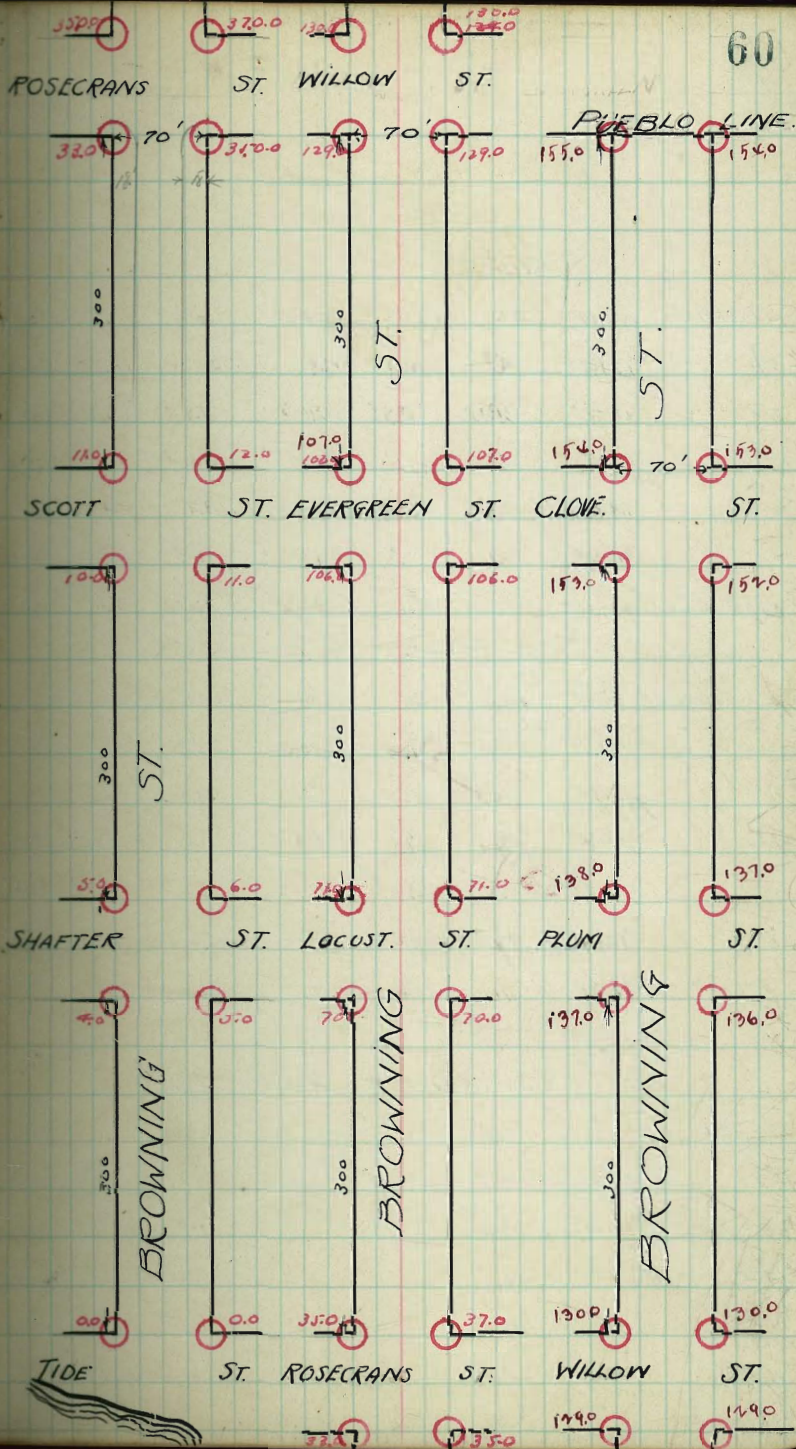 60
35.0.0 37.0.0 130.0 130.0
129.0
ROSECRANS ST. WILLOW ST.
PUEBLO LINE.
70' 70'
33.0 35.0.0 129.0 129.0 155.0 154.0
300 300 ST. 300. ST.
11.0 12.0 107.0 107.0 154.0 70' 153.0
SCOTT ST. EVERGREEN ST. CLOVE. ST.
10.0 11.0 106.0 106.0 153.0 152.0
300 ST. 300 300
5.0 6.0 71.0 71.0 138.0 137.0
SHAFTER ST. LOCUST. ST. PLUM ST.
4.0 5.0 70.0 137.0 136.0
300 BROWNING 300 BROWNING 300 BROWNING
0.0 0.0 35.0 37.0 130.0 130.0
TIDE ST. ROSECRANS ST. WILLOW ST.
33.0 35.0 129.0 129.0